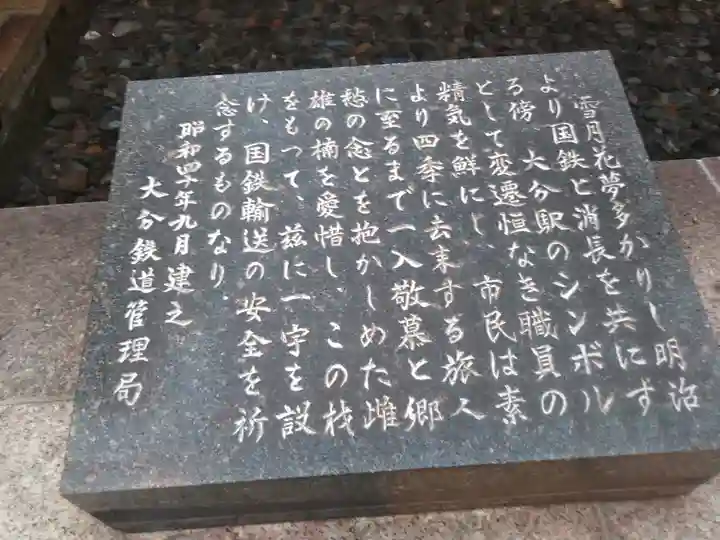 雪月花夢多かりし明治
より国鉄と消長を共にす
る傍、大分駅のシンボル
として変遷恒なき職員の
精気を鮮にし、市民は素
より四季に去来する旅人
に至るまで一入敬慕と郷
愁の念とを抱かしめた雌
雄の楠を愛惜し、この材
をもって、茲に一宇を設
け、国鉄輸送の安全を祈
念するものなり．
昭和四十年九月建之
大分鉄道管理局